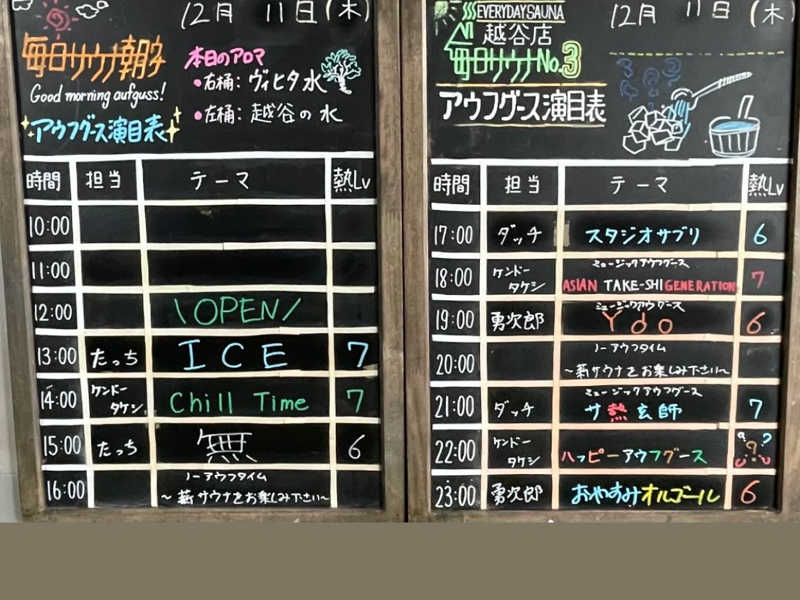 12月 11日(木)
毎日サウナ朝
Good morning aufguss!
アウフグース演目表
本日のアロマ
・右桶：ヴィヒタ水
・左桶：越谷の水
時間 担当 テーマ 熱Lv
10:00
11:00
12:00 \OPEN/
13:00 たっち ICE 7
14:00 ケンドータケシ Chill Time 7
15:00 たっち 無 6
16:00 ノーアウフタイム
〜薪サウナをお楽しみ下さい〜
EVERYDAY SAUNA
越谷店
毎日サウナNo.3
12月 11日(木)
アウフグース演目表
時間 担当 テーマ 熱Lv
17:00 ダッチ スタジオサブリ 6
18:00 ケンドータケシ ミュージックアウフグース
ASIAN TAKE-SHI GENERATION 7
19:00 勇次郎 ミュージックアウフグース
Ydo 6
20:00 ノーアウフタイム
〜薪サウナをお楽しみ下さい〜
21:00 ダッチ ミュージックアウフグース
サ熱玄師 7
22:00 ケンドータケシ ハッピーアウフグース ???
23:00 勇次郎 おやすみオルゴール 6